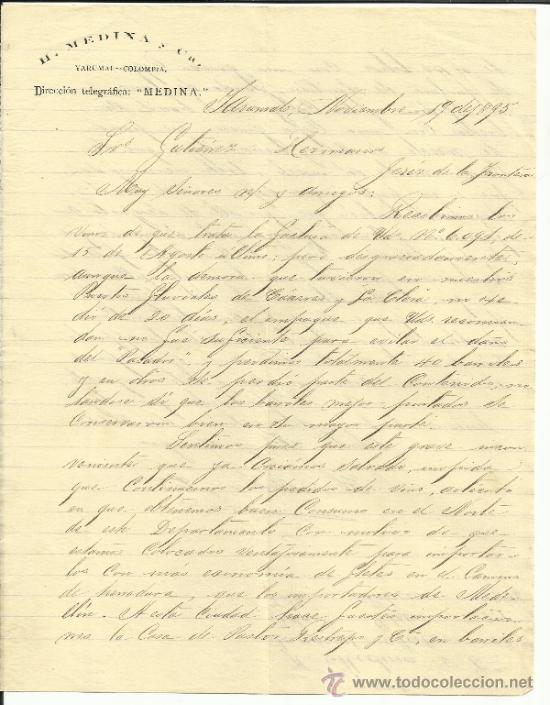 H. MEDINA & Ca.
YARUMAL-COLOMBIA.
Dirección telegráfica: "MEDINA."
Yarumal, Noviembre 19 de 1895
Sres Gutiérrez Hermanos
Jeréz de la Frontera
Muy Señores ntros y amigos:
Recibimos los
vinos de que trata la factura de Uds No 6.091, de
15 de Agosto último; pero desgraciadamente,
aunque la demora que tuvieron en nuestros
Puertos fluviales de Cáceres y La Clara, no
de 20 dias, el empaque que Uds recomen
daron no fué suficiente para evitar el daño
del "Palador" y perdimos totalmente 40 barriles
y en otros se perdió parte del Contenido; no
sí que los barriles mejor pintados se
Conservaron bien en su mayor parte.
Sentimos pues que este grave incon
veniente que ya Creíamos salvado, impida
que Continuemos los pedidos de vino, artículo
en que obtenemos buen Consumo en el Norte
de este Departamento Con motivo de que
estamos Colocados ventajosamente para importar
los Con más economía de fletes en el Camino
de herradura, que los importadores de Mede
llín. A esta Ciudad hace fuertes importacio
nes la Casa de Pastor Restrepo y Ca, en barriles
todocoleccion.net